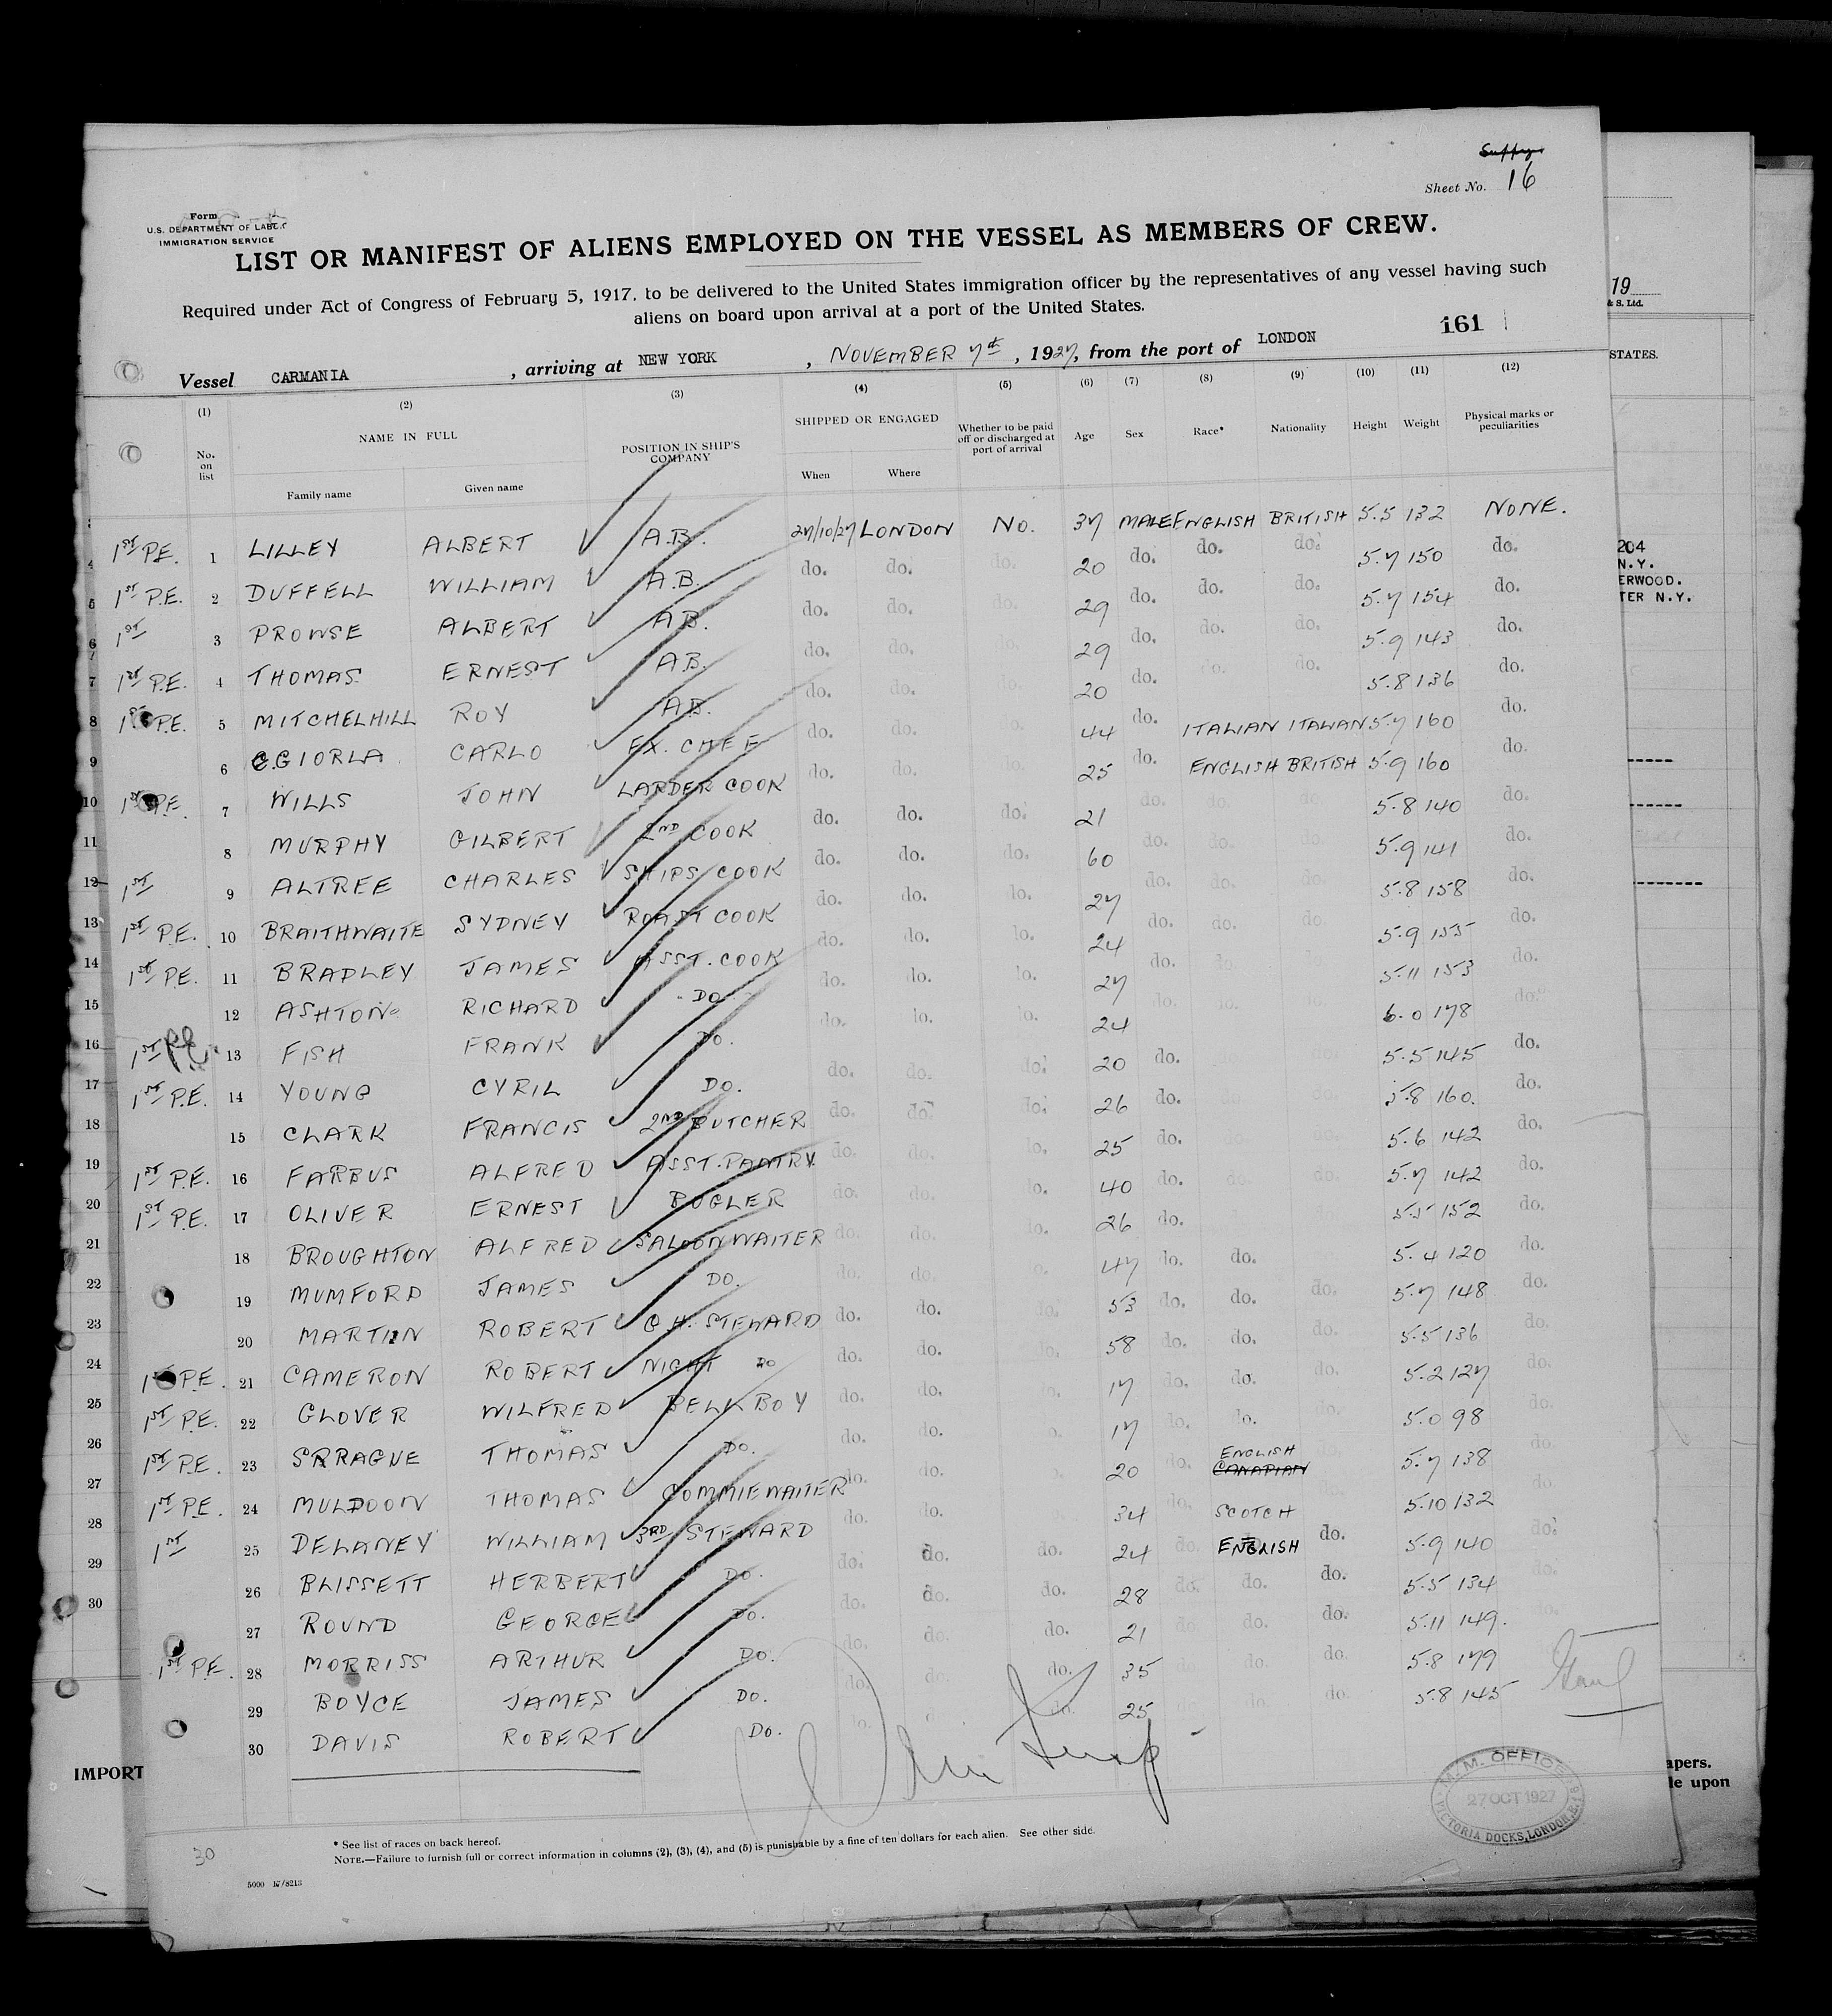 Sheet No. 16
Form
U.S. DEPARTMENT OF LABOR
IMMIGRATION SERVICE
LIST OR MANIFEST OF ALIENS EMPLOYED ON THE VESSEL AS MEMBERS OF CREW.
Required under Act of Congress of February 5, 1917, to be delivered to the United States immigration officer by the representatives of any vessel having such
aliens on board upon arrival at a port of the United States.
161
Vessel CARMANIA, arriving at NEW YORK, NOVEMBER 7th, 1927, from the port of LONDON
(1) (2) (3) (4) (5) (6) (7) (8) (9) (10) (11) (12)
No. on list NAME IN FULL POSITION IN SHIP'S COMPANY SHIPPED OR ENGAGED Whether to be paid off or discharged at port of arrival Age Sex Race* Nationality Height Weight Physical marks or peculiarities
Family name Given name When Where
1st P.E. 1 LILLEY ALBERT A.B. 27/10/27 LONDON No. 37 MALE ENGLISH BRITISH 5.5 132 NONE.
1st P.E. 2 DUFFELL WILLIAM A.B. do. do. do. 20 do. do. do. 5.7 150 do.
1st 3 PROWSE ALBERT A.B. do. do. do. 29 do. do. do. 5.7 154 do.
1st P.E. 4 THOMAS ERNEST A.B. do. do. do. 29 do. do. do. 5.9 143 do.
1st P.E. 5 MITCHELHILL ROY A.B. do. do. do. 20 do. do. do. 5.8 136 do.
6 GIORLA CARLO EX. CHEF do. do. 44 do. ITALIAN ITALIAN 5.7 160 do.
1st P.E. 7 WILLS JOHN LARDER COOK do. do. 25 do. ENGLISH BRITISH 5.9 160 do.
8 MURPHY GILBERT 2ND COOK do. do. do. 21 do. do. do. 5.8 140 do.
1st 9 ALTREE CHARLES SHIPS COOK do. do. do. 60 do. do. do. 5.9 141 do.
1st P.E. 10 BRAITHWAITE SYDNEY ROAST COOK do. do. do. 27 do. do. do. 5.8 158 do.
1st P.E. 11 BRADLEY JAMES ASST. COOK do. do. do. 24 do. do. do. 5.9 155 do.
12 ASHTON RICHARD DO do. do. do. 27 do. do. 5.11 153 do.
1st P.E. 13 FISH FRANK DO. do. do. do. 24 do. do. 6.0 178 do.
1st P.E. 14 YOUNG CYRIL DO. do. do. do. 20 do. do. 5.5 145 do.
15 CLARK FRANCIS 2ND BUTCHER do. do. do. 26 do. 5.8 160. do.
1st P.E. 16 FARBUS ALFRED ASST. PANTRY do. do. do. 25 do. 5.6 142 do.
1st P.E. 17 OLIVER ERNEST BUGLER do. do. do. 40 do. do. 5.7 142 do.
18 BROUGHTON ALFRED SALOON WAITER do. do. do. 26 do. 5.5 152 do.
19 MUMFORD JAMES DO. do. do. 47 do. do. 5.4 120 do.
20 MARTIN ROBERT C.H. STEWARD do. do. do. 53 do. do. do. 5.7 148 do.
1st P.E. 21 CAMERON ROBERT NIGHT DO do. do. 58 do. do. do. 5.5 136 do.
1st P.E. 22 GLOVER WILFRED BELL BOY do. do. 17 do. do. do. 5.2 127 do.
1st P.E. 23 SPRAGUE THOMAS DO. do. do. 17 do. do. do. 5.0 98 do.
1st P.E. 24 MULDOON THOMAS COMMIE WAITER do. do. 20 do. ENGLISH CANADIAN 5.7 138 do.
1st 25 DELANEY WILLIAM 3RD STEWARD do. do. 34 do. SCOTCH 5.10 132 do.
26 BLISSETT HERBERT DO. do. do. do. 24 do. ENGLISH do. 5.9 140 do.
27 ROUND GEORGE DO. do. do. do. 28 do. do. do. 5.5 134 do.
1st P.E. 28 MORRISS ARTHUR DO. do. do. do. 21 do. do. do. 5.11 149. do.
29 BOYCE JAMES DO. do. do. do. 35 do. do. do. 5.8 179
30 DAVIS ROBERT DO. do. do. 25 do. do. 5.8 145
M.M. OFFICE
27 OCT 1927
VICTORIA DOCKS, LONDON, E.
* See list of races on back hereof.
NOTE.—Failure to furnish full or correct information in columns (2), (3), (4), and (5) is punishable by a fine of ten dollars for each alien. See other side.
30
5000 17/8213
IMPORT
19
& S. Ltd.
STATES.
204
N.Y.
ERWOOD.
TER N.Y.
apers.
le upon
3
4
5
6
7
8
9
10
11
12
13
14
15
16
17
18
19
20
21
22
23
24
25
26
27
28
29
30